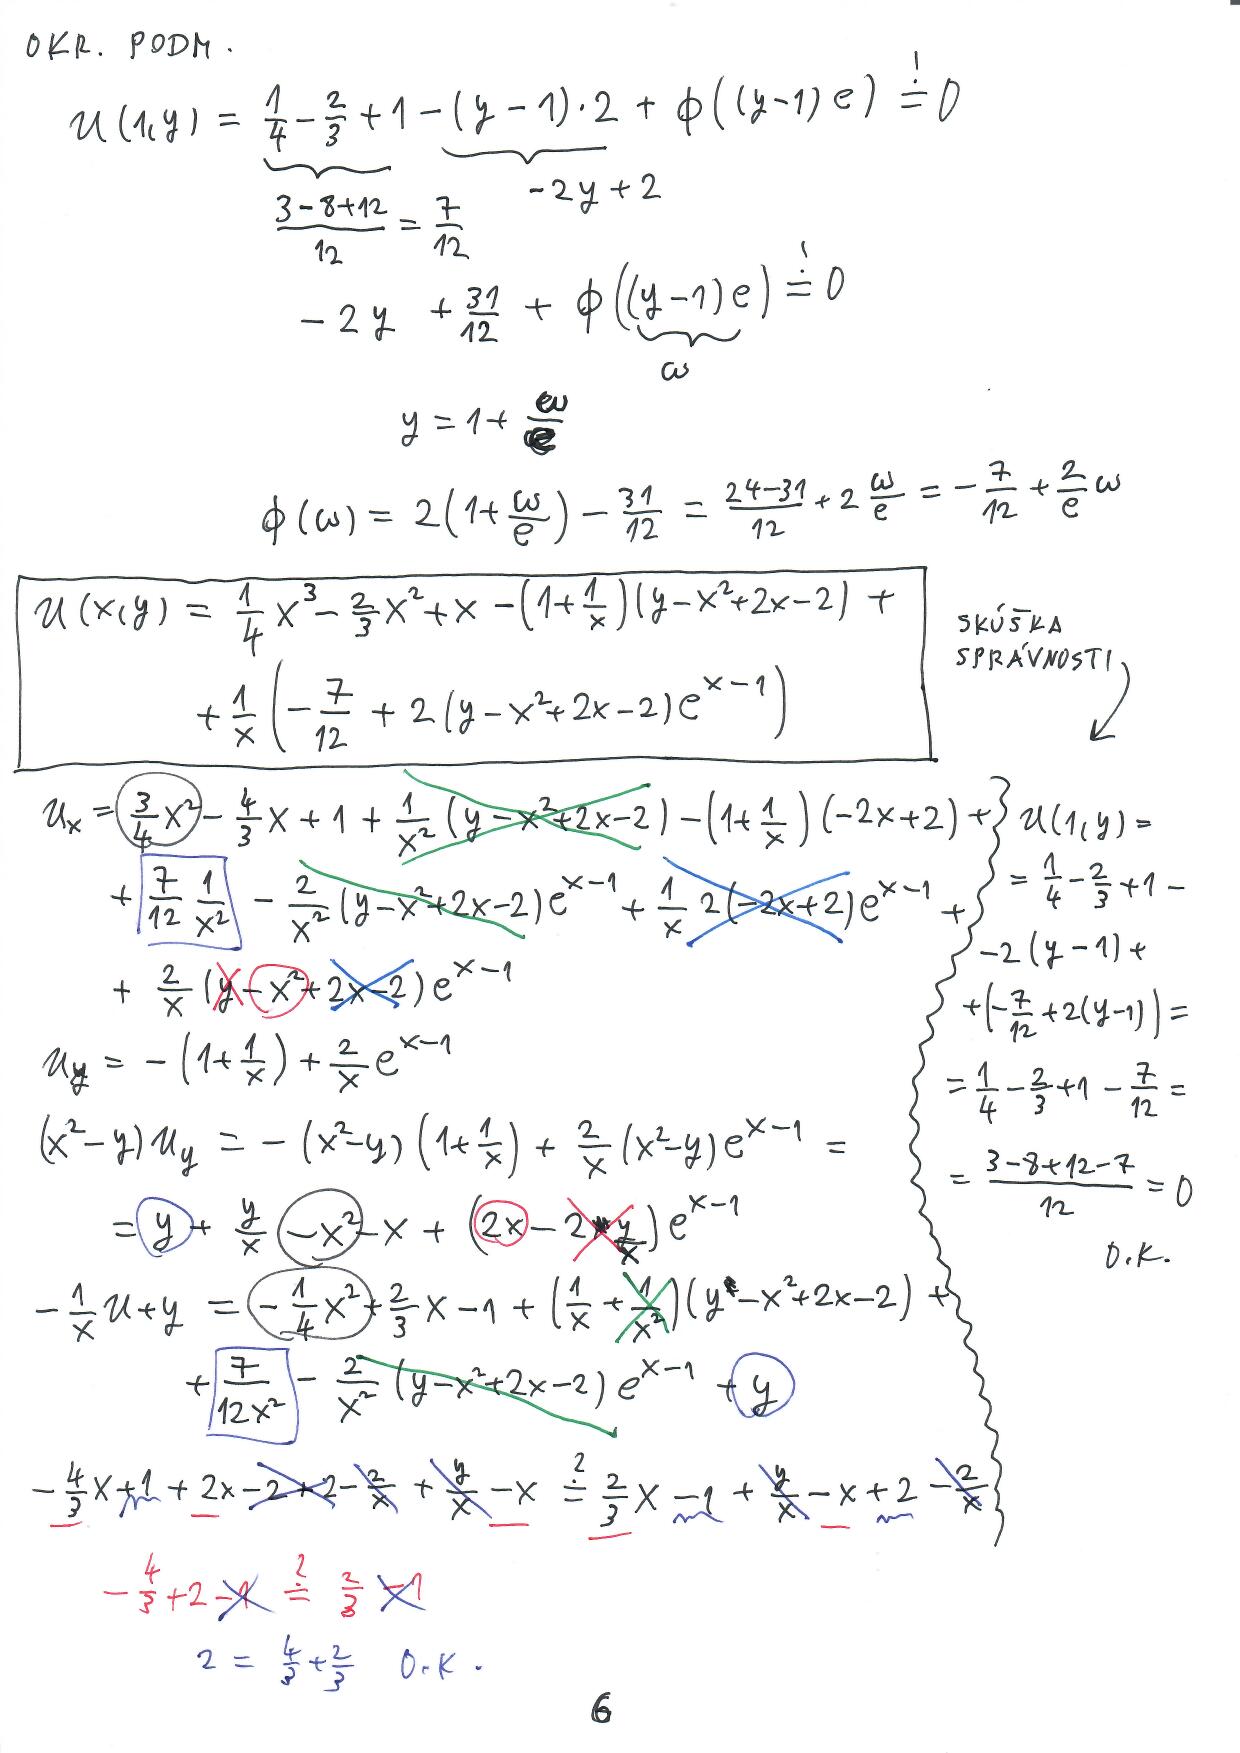 OKR. PODM.
u(1,y) = 1/4 - 2/3 + 1 - (y-1)·2 + ϕ((y-1)e) ≐! 0
(3-8+12)/12 = 7/12
-2y+2
-2y + 31/12 + ϕ((y-1)e) ≐! 0
ω
y = 1 + ω/e
ϕ(ω) = 2(1+ω/e) - 31/12 = (24-31)/12 + 2 ω/e = -7/12 + 2/e ω
u(x,y) = 1/4 x³ - 2/3 x² + x - (1+1/x)(y-x²+2x-2) +
+ 1/x (-7/12 + 2(y-x²+2x-2)e^(x-1))
SKÚŠKA
SPRÁVNOSTI
u_x = 3/4 x² - 4/3 x + 1 + 1/x² (y-x²+2x-2) - (1+1/x)(-2x+2) +
+ 7/12 1/x² - 2/x² (y-x²+2x-2)e^(x-1) + 1/x 2(-2x+2)e^(x-1) +
+ 2/x (y-x²+2x-2)e^(x-1)
u_y = -(1+1/x) + 2/x e^(x-1)
(x²-y)u_y = -(x²-y)(1+1/x) + 2/x (x²-y)e^(x-1) =
= y + y/x - x² - x + (2x - 2 y/x)e^(x-1)
-1/x u + y = -1/4 x² + 2/3 x - 1 + (1/x + 1/x²)(y-x²+2x-2) +
+ 7/12x² - 2/x² (y-x²+2x-2)e^(x-1) + y
-4/3 x + 1 + 2x - 2 + 2 - 2/x + y/x - x ≐? 2/3 x - 1 + y/x - x + 2 - 2/x
-4/3 + 2 - 1 ≐? 2/3 - 1
2 = 4/3 + 2/3 O.K.
u(1,y) =
= 1/4 - 2/3 + 1 -
-2(y-1) +
+(-7/12 + 2(y-1)) =
= 1/4 - 2/3 + 1 - 7/12 =
= (3-8+12-7)/12 = 0
O.K.
6